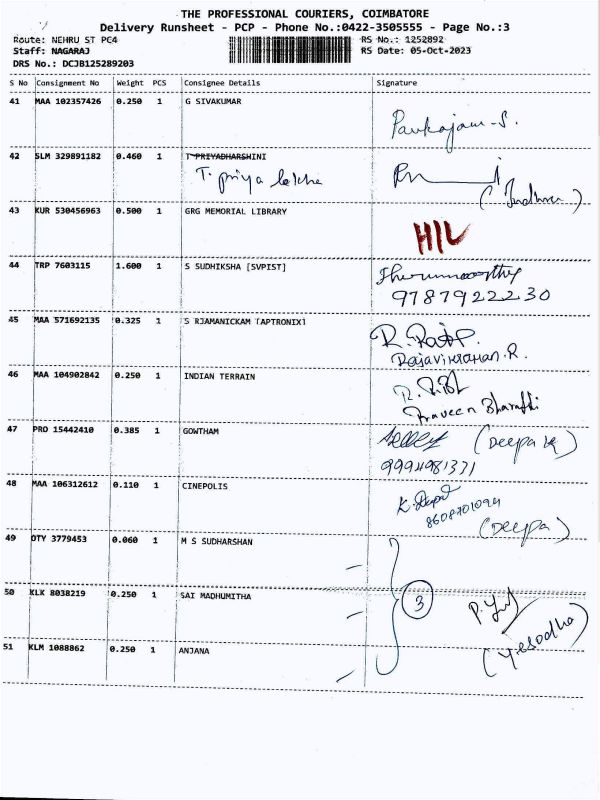 THE PROFESSIONAL COURIERS, COIMBATORE
Delivery Runsheet - PCP - Phone No.:0422-3505555 - Page No.:3
Route: NEHRU ST PC4 RS No.: 1252892
Staff: NAGARAJ RS Date: 05-Oct-2023
DRS No.: DCJB125289203
S No Consignment No Weight PCS Consignee Details Signature
41 MAA 102357426 0.250 1 G SIVAKUMAR
Pankajam-S.
42 SLM 329891182 0.460 1 T PRIYADHARSHINI
T. priya
43 KUR 530456963 0.500 1 GRG MEMORIAL LIBRARY
H/L
44 TRP 7603115 1.600 1 S SUDHIKSHA [SVPIST]
9787922230
45 MAA 571692135 0.325 1 S RJAMANICKAM [APTRONIX]
46 MAA 104902842 0.250 1 INDIAN TERRAIN
Praveen Bharathi
47 PRO 15442410 0.385 1 GOWTHAM
(Deepa K)
9994981371
48 MAA 106312612 0.110 1 CINEPOLIS
8608701094
(Deepa)
49 OTY 3779453 0.060 1 M S SUDHARSHAN
50 KLK 8038219 0.250 1 SAI MADHUMITHA
3
51 KLM 1088862 0.250 1 ANJANA
(Yesodha)